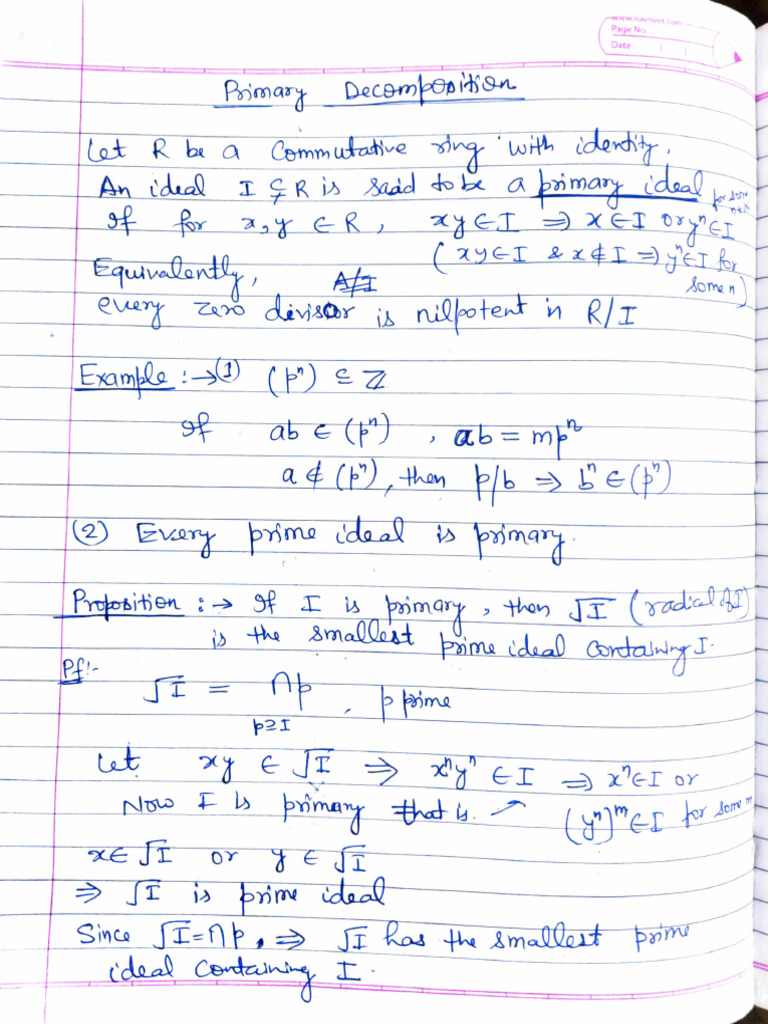 www.navneet.com
Page No.
Date
Primary Decomposition
Let R be a commutative ring with identity.
An ideal I ⊊ R is said to be a primary ideal for some n∈ℕ
If for x, y ∈ R, xy ∈ I ⇒ x ∈ I or yⁿ ∈ I
(xy ∈ I & x ∉ I ⇒ yⁿ ∈ I for some n)
Equivalently,
every zero divisor is nilpotent in R/I
Example :→ (1) (pⁿ) ⊆ ℤ
If ab ∈ (pⁿ), ab = mpⁿ
a ∉ (pⁿ), then p/b ⇒ bⁿ ∈ (pⁿ)
(2) Every prime ideal is primary.
Proposition :→ If I is primary, then √I (radical of I)
is the smallest prime ideal containing I.
Pf:-
√I = ∩p, p prime
p⊇I
Let xy ∈ √I ⇒ xⁿyⁿ ∈ I ⇒ xⁿ ∈ I or
Now I is primary that is. (yⁿ)ᵐ ∈ I for some m
x ∈ √I or y ∈ √I
⇒ √I is prime ideal
Since √I = ∩p, ⇒ √I has the smallest prime
ideal containing I.